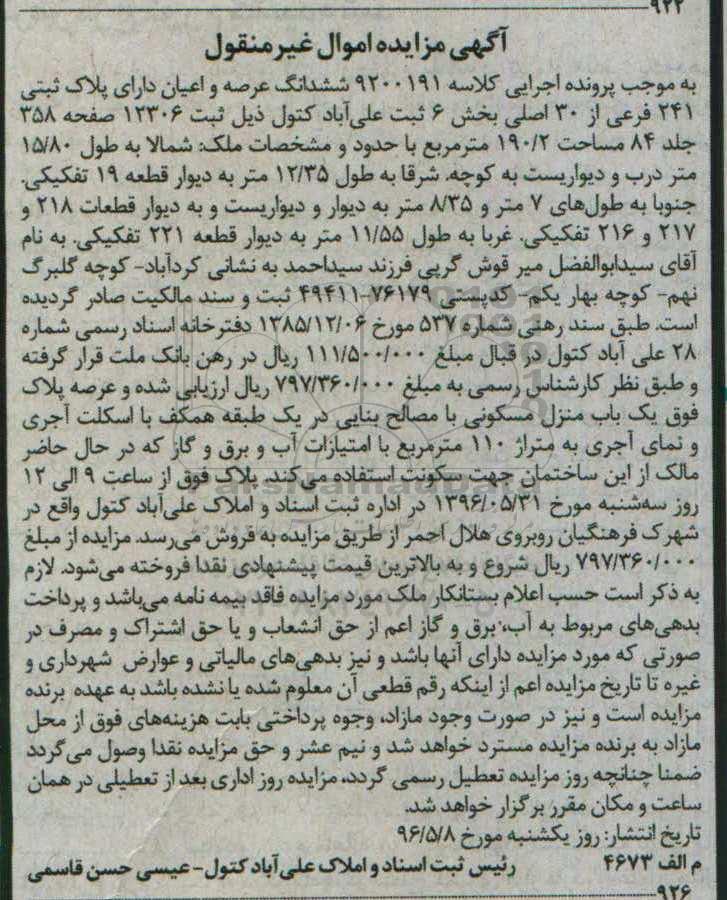 ۹۲۲
آگهی مزایده اموال غیرمنقول
به موجب پرونده اجرایی کلاسه ۹۲۰۰۱۹۱ ششدانگ عرصه و اعیان دارای پلاک ثبتی
۲۴۱ فرعی از ۳۰ اصلی بخش ۶ ثبت علی‌آباد کتول ذیل ثبت ۱۲۳۰۶ صفحه ۳۵۸
جلد ۸۴ مساحت ۱۹۰/۲ مترمربع با حدود و مشخصات ملک: شمالا به طول ۱۵/۸۰
متر درب و دیواریست به کوچه. شرقا به طول ۱۲/۳۵ متر به دیوار قطعه ۱۹ تفکیکی.
جنوبا به طول‌های ۷ متر و ۸/۳۵ متر به دیوار و دیواریست و به دیوار قطعات ۲۱۸ و
۲۱۷ و ۲۱۶ تفکیکی. غربا به طول ۱۱/۵۵ متر به دیوار قطعه ۲۲۱ تفکیکی. به نام
آقای سیدابوالفضل میر قوش گرپی فرزند سیداحمد به نشانی کردآباد- کوچه گلبرگ
نهم- کوچه بهار یکم- کدپستی ۷۶۱۷۹-۴۹۴۱۱ ثبت و سند مالکیت صادر گردیده
است. طبق سند رهنی شماره ۵۳۷ مورخ ۱۳۸۵/۱۲/۰۶ دفترخانه اسناد رسمی شماره
۲۸ علی آباد کتول در قبال مبلغ ۱۱۱/۵۰۰/۰۰۰ ریال در رهن بانک ملت قرار گرفته
و طبق نظر کارشناس رسمی به مبلغ ۷۹۷/۳۶۰/۰۰۰ ریال ارزیابی شده و عرصه پلاک
فوق یک باب منزل مسکونی با مصالح بنایی در یک طبقه همکف با اسکلت آجری
و نمای آجری به متراژ ۱۱۰ مترمربع با امتیازات آب و برق و گاز که در حال حاضر
مالک از این ساختمان جهت سکونت استفاده می‌کند. پلاک فوق از ساعت ۹ الی ۱۲
روز سه‌شنبه مورخ ۱۳۹۶/۰۵/۳۱ در اداره ثبت اسناد و املاک علی‌آباد کتول واقع در
شهرک فرهنگیان روبروی هلال احمر از طریق مزایده به فروش می‌رسد. مزایده از مبلغ
۷۹۷/۳۶۰/۰۰۰ ریال شروع و به بالاترین قیمت پیشنهادی نقدا فروخته می‌شود. لازم
به ذکر است حسب اعلام بستانکار ملک مورد مزایده فاقد بیمه نامه می‌باشد و پرداخت
بدهی‌های مربوط به آب، برق و گاز اعم از حق انشعاب و یا حق اشتراک و مصرف در
صورتی که مورد مزایده دارای آنها باشد و نیز بدهی‌های مالیاتی و عوارض شهرداری و
غیره تا تاریخ مزایده اعم از اینکه رقم قطعی آن معلوم شده یا نشده باشد به عهده برنده
مزایده است و نیز در صورت وجود مازاد، وجوه پرداختی بابت هزینه‌های فوق از محل
مازاد به برنده مزایده مسترد خواهد شد و نیم عشر و حق مزایده نقدا وصول می‌گردد
ضمنا چنانچه روز مزایده تعطیل رسمی گردد، مزایده روز اداری بعد از تعطیلی در همان
ساعت و مکان مقرر برگزار خواهد شد.
تاریخ انتشار: روز یکشنبه مورخ ۹۶/۵/۸
م الف ۴۶۷۳ رئیس ثبت اسناد و املاک علی‌آباد کتول- عیسی حسن قاسمی
۹۲۶